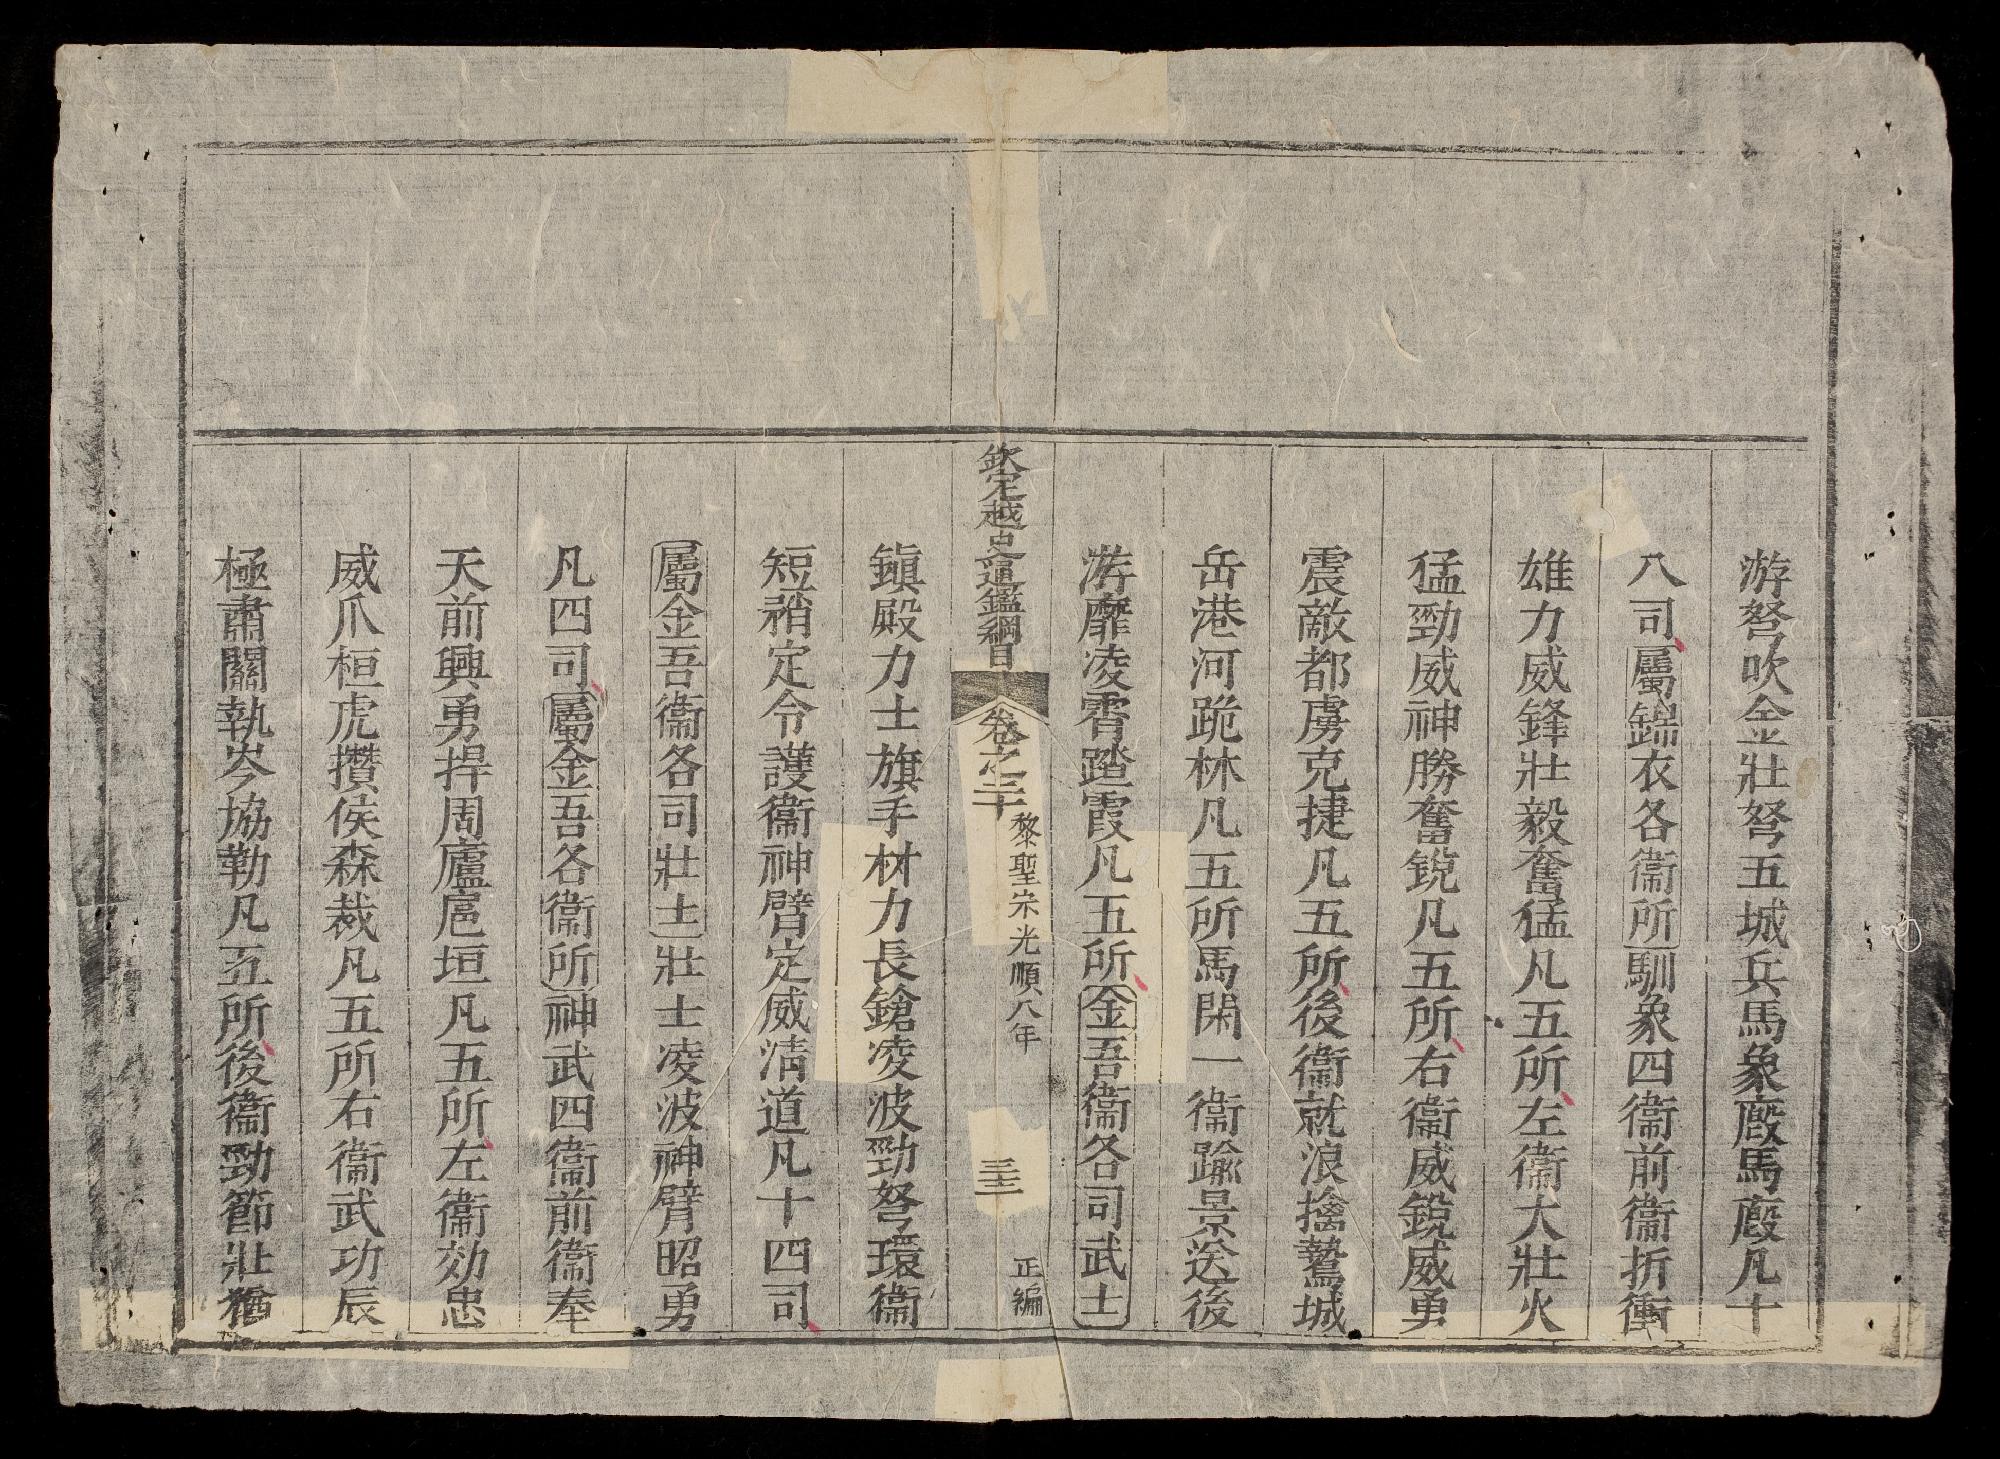 游弩吹金壯弩五城兵馬象廄馬廄凡十
八司屬錦衣各衞所馴象四衞前衞折衝
雄力威鋒壯毅奮猛凡五所左衞大壯火
猛勁威神勝奮銳凡五所右衞威銳威勇
震敵都虜克捷凡五所後衞就浪擒鷙城
岳港河跪林凡五所馬閑一衞踰景送後
游靡凌霄踏霞凡五所金吾衞各司武士
欽定越史通鑑綱目 卷之二十 黎聖宗光順八年 三十二 正編
鎮殿力士旗手材力長鎗凌波勁弩環衞
短矟定令護衞神臂定威清道凡十四司
屬金吾衞各司壯士壯士凌波神臂昭勇
凡四司屬金吾各衞所神武四衞前衞奉
天前興勇捍周廬扈垣凡五所左衞効忠
威爪桓虎攢侯森裁凡五所右衞武功辰
極肅關執岑協勒凡五所後衞勁節壯猶